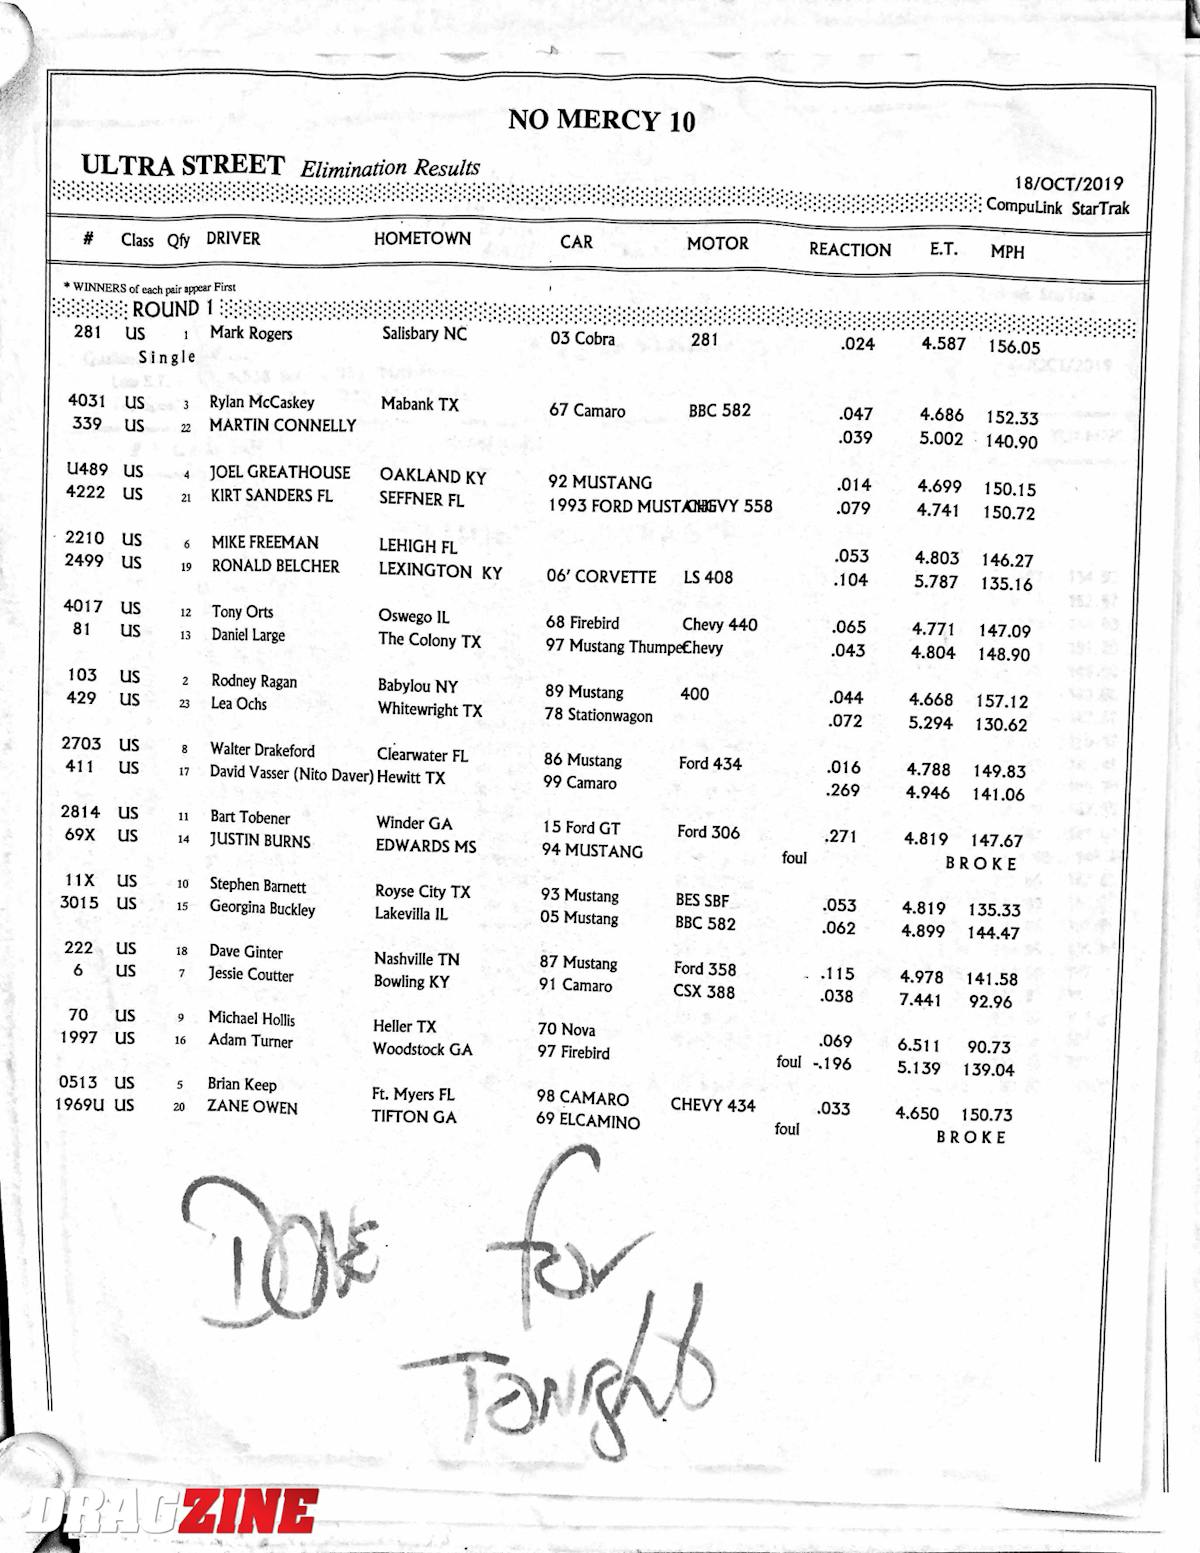 NO MERCY 10
ULTRA STREET Elimination Results
18/OCT/2019
CompuLink StarTrak
# Class Qfy DRIVER HOMETOWN CAR MOTOR REACTION E.T. MPH
* WINNERS of each pair appear First
ROUND 1
281 US 1 Mark Rogers Salisbary NC 03 Cobra 281 .024 4.587 156.05
Single
4031 US 3 Rylan McCaskey Mabank TX 67 Camaro BBC 582 .047 4.686 152.33
339 US 22 MARTIN CONNELLY .039 5.002 140.90
U489 US 4 JOEL GREATHOUSE OAKLAND KY 92 MUSTANG .014 4.699 150.15
4222 US 21 KIRT SANDERS FL SEFFNER FL 1993 FORD MUSTANG CHEVY 558 .079 4.741 150.72
2210 US 6 MIKE FREEMAN LEHIGH FL .053 4.803 146.27
2499 US 19 RONALD BELCHER LEXINGTON KY 06' CORVETTE LS 408 .104 5.787 135.16
4017 US 12 Tony Orts Oswego IL 68 Firebird Chevy 440 .065 4.771 147.09
81 US 13 Daniel Large The Colony TX 97 Mustang Thumpe Chevy .043 4.804 148.90
103 US 2 Rodney Ragan Babylou NY 89 Mustang 400 .044 4.668 157.12
429 US 23 Lea Ochs Whitewright TX 78 Stationwagon .072 5.294 130.62
2703 US 8 Walter Drakeford Clearwater FL 86 Mustang Ford 434 .016 4.788 149.83
411 US 17 David Vasser (Nito Daver) Hewitt TX 99 Camaro .269 4.946 141.06
2814 US 11 Bart Tobener Winder GA 15 Ford GT Ford 306 .271 4.819 147.67
69X US 14 JUSTIN BURNS EDWARDS MS 94 MUSTANG foul BROKE
11X US 10 Stephen Barnett Royse City TX 93 Mustang BES SBF .053 4.819 135.33
3015 US 15 Georgina Buckley Lakevilla IL 05 Mustang BBC 582 .062 4.899 144.47
222 US 18 Dave Ginter Nashville TN 87 Mustang Ford 358 .115 4.978 141.58
6 US 7 Jessie Coutter Bowling KY 91 Camaro CSX 388 .038 7.441 92.96
70 US 9 Michael Hollis Heller TX 70 Nova .069 6.511 90.73
1997 US 16 Adam Turner Woodstock GA 97 Firebird foul -.196 5.139 139.04
0513 US 5 Brian Keep Ft. Myers FL 98 CAMARO CHEVY 434 .033 4.650 150.73
1969U US 20 ZANE OWEN TIFTON GA 69 ELCAMINO foul BROKE
DONE for
Tonight
DRAGZINE